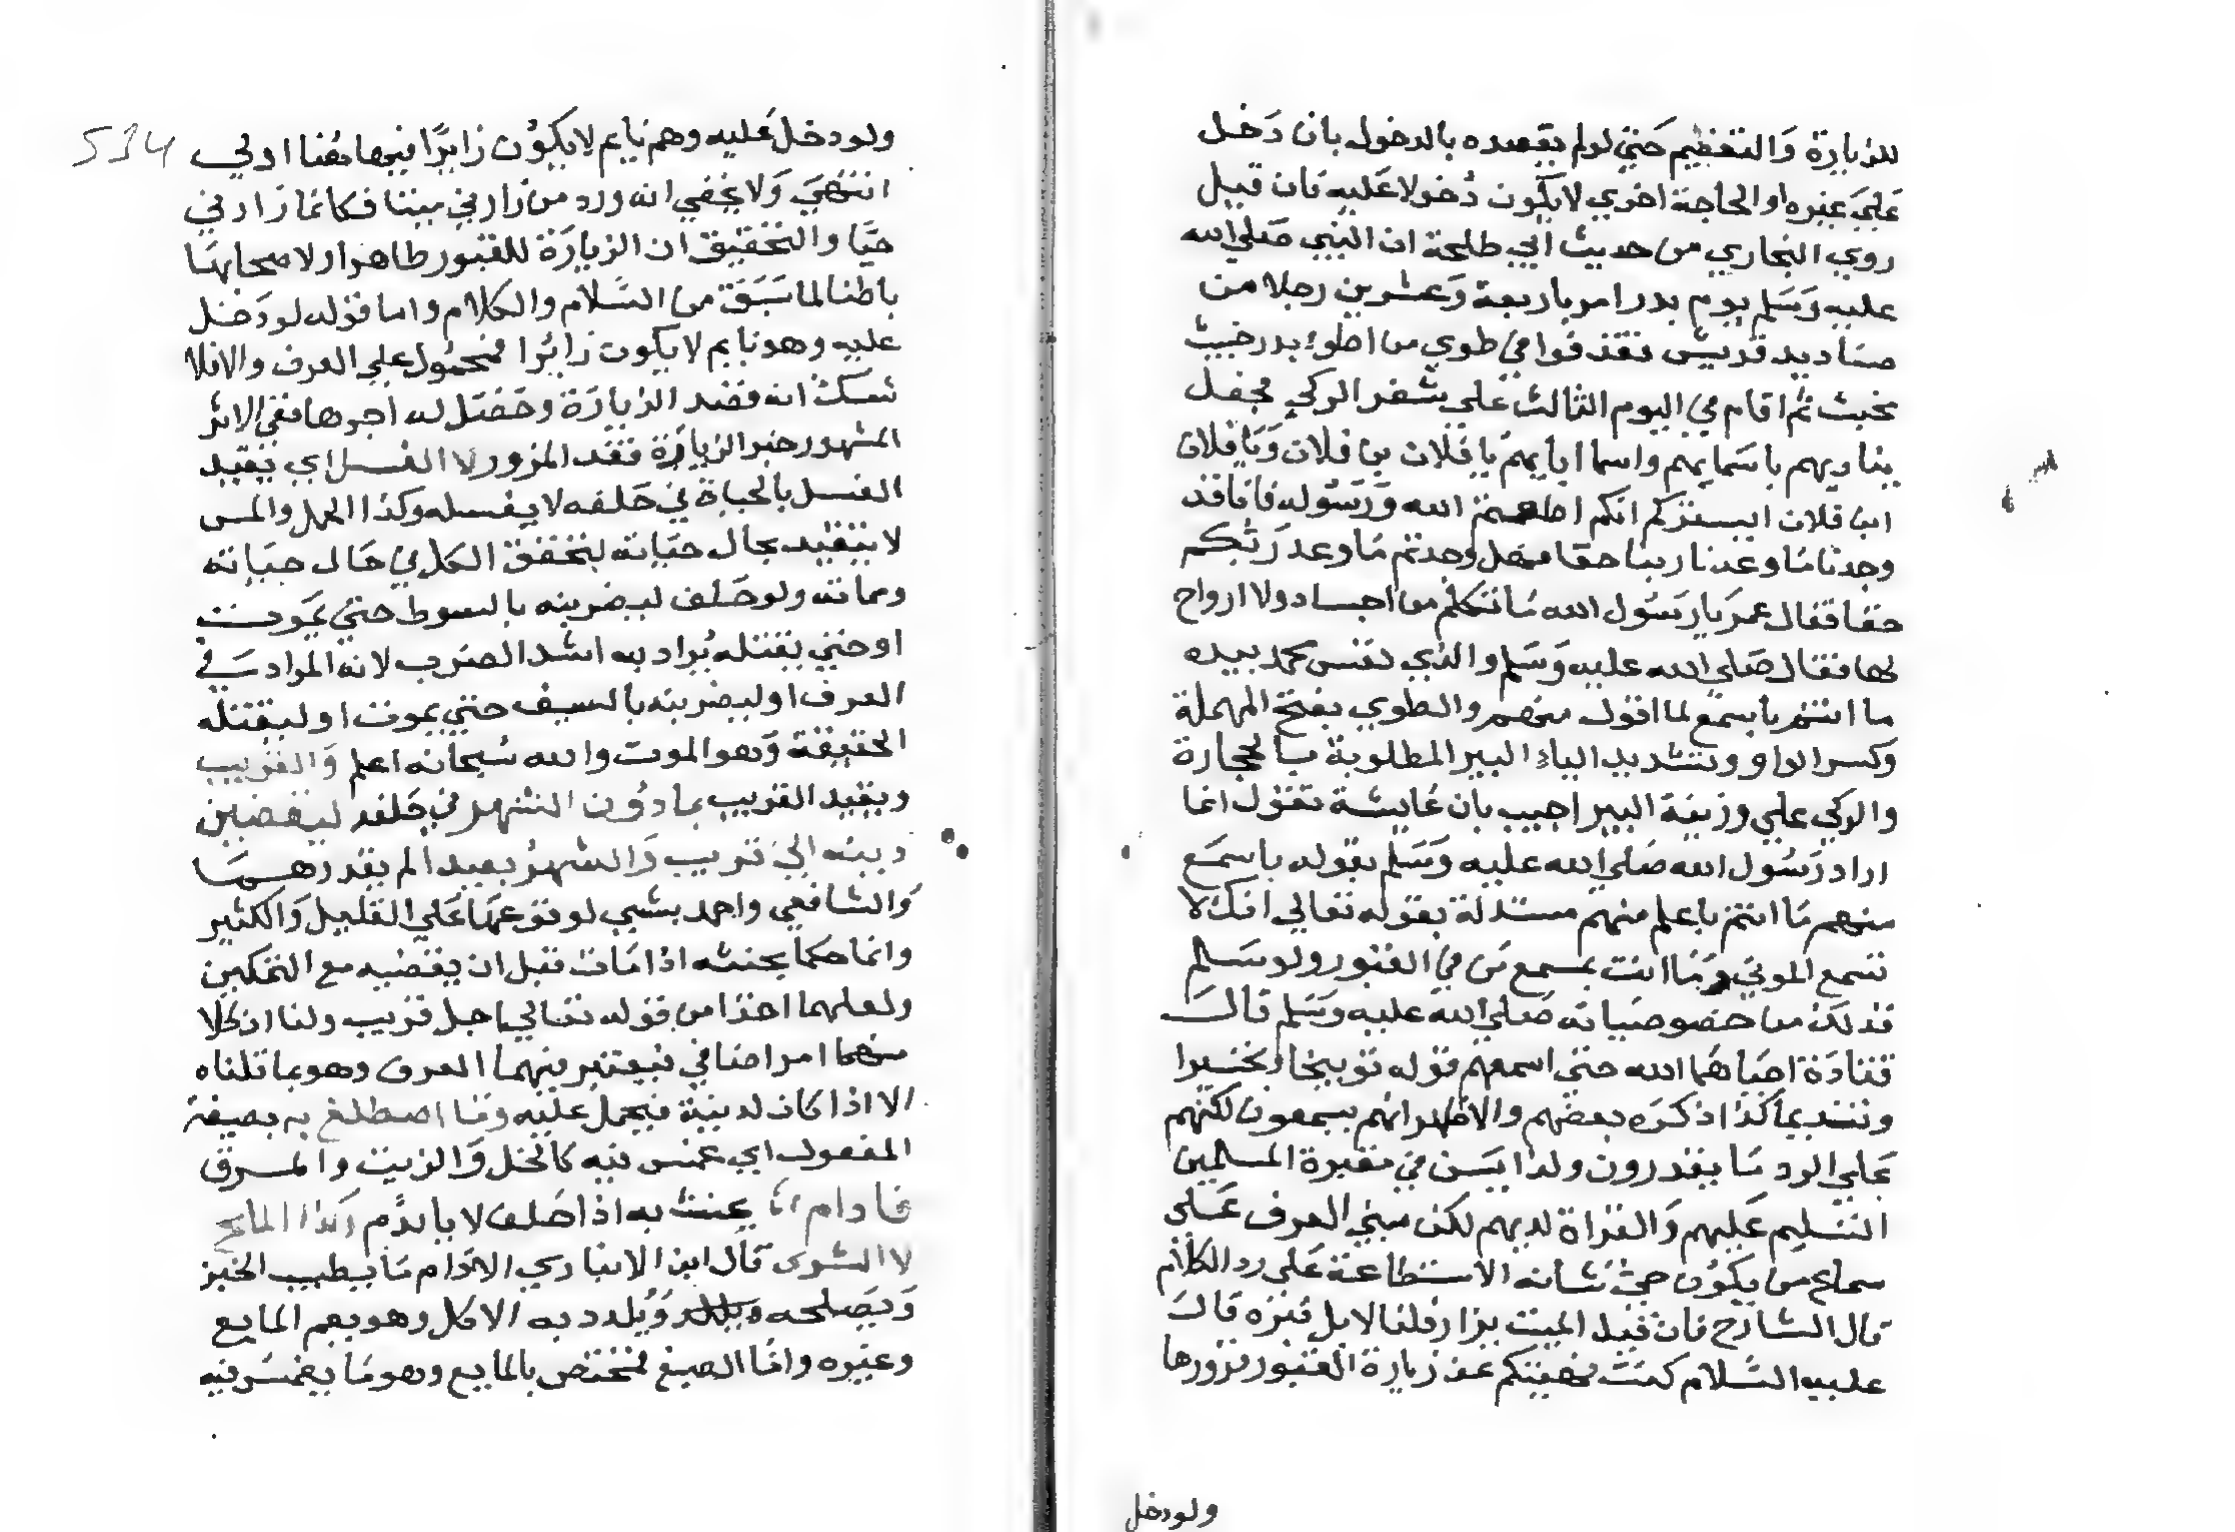 للزيارة والتعظيم حتي لو لم يقصده بالدخول بان دخل
علي غيره او لحاجة اخري لا يكون دخولا عليه فان قيل
روي البخاري من حديث ابي طلحة ان النبي صلي الله
عليه وسلم يوم بدر امر باربعة وعشرين رجلا من
صناديد قريش فقذفوا في طوي من اطواء بدر خبيث
مخبث ثم اقام في اليوم الثالث علي شفر الركي فجعل
يناديهم باسمايهم واسما ابايهم يا فلان بن فلان ويا فلان
ابن فلان ايسركم انكم اطعتم الله ورسوله فانا قد
وجدنا ما وعدنا ربنا حقا فهل وجدتم ما وعد ربكم
حقا فقال عمر يا رسول الله ما تتكلم من اجساد ولا ارواح
لها فقال صلي الله عليه وسلم والذي نفس محمد بيده
ما انتم باسمع لما اقول منهم والطوي بفتح المهملة
وكسر الواو وتشديد الياء البير المطلوبة بالحجارة
والركي علي وزنه البير اجيب بان عايشة تقول انما
اراد رسول الله صلي الله عليه وسلم بقوله باسمع
منهم ما انتم باعلم منهم مستدلة بقوله تعالي انك لا
تسمع الموتي وما انت بمسمع من في القبور ولو سلم
فذلك من خصوصياته صلي الله عليه وسلم قال
قتادة احياهم الله حتي اسمعهم قوله توبيخا وتحسيرا
وتنديما كذا ذكره بعضهم والاظهر انهم يسمعون لكنهم
علي الرد ما يقدرون ولذا يسن في مقبرة المسلمين
التسليم عليهم والقراة لديهم لكن مبني العرف علي
سماع من يكون من شانه الاستطاعة علي رد الكلام
قال الشارح فان قيل الميت يزار قلنا لا بل قبره قال
عليه السلام كنت نهيتكم عن زيارة القبور فزورها
ولو دخل
534
ولو دخل عليه وهم نايم لا يكون زايرا فيها هنا اولي
انتهي ولا يخفي انه ورد من زارني ميتا فكانما زارني
حيا والتحقيق ان الزيارة للقبور ظاهرا ولاصحابها
باطنا لما سبق من السلام والكلام واما قوله لو دخل
عليه وهو نايم لا يكون زايرا فمحمول علي العرف والا فلا
شك انه قصد الزيارة وحصل له اجرها ففي الاثر
المشهور خير الزيارة فقد المزور لا الغسل اي تقيد
الغسل بالحياة في حلفه لا يغسله وكذا الحمل والمس
لا يتقيد بحال حياته لتحقق الكل في حال حياته
ومماته ولو حلف ليضربنه بالسوط حتي يموت
او حتي يقتله يراد به اشد الضرب لانه المراد في
العرف او ليضربنه بالسيف حتي يموت او ليقتله
الحقيقة وهو الموت والله سبحانه اعلم والقريب
ويقيد القريب بما دون الشهر في حلفه ليقضين
دينه الي قريب والشهر بعيد الم يقدرهما
والشافعي واحمد بشي لوقوعهما علي القليل والكثير
وانما حكما بحنثه اذا مات قبل ان يقضيه مع التمكين
ولعلهما اخذا من قوله تعالي اجل قريب ولنا ان كلا
منهما امر اضافي فيعتبر فيهما العرف وهو ما قلناه
الا اذا كان له نية فيحمل عليه وما اصطبغ به بصيغة
المفعول اي غمس فيه كالخل والزيت والمرق
يحنث به اذا حلف لا ياتدم وكذا الملح
لا الشوي قال ابن الانباري الادام ما يطيب الخبز
ويصلحه ويلدد به الاكل وهو يعم المايع
وغيره واما الصبغ فمختص بالمايع وهو ما يغمس فيه